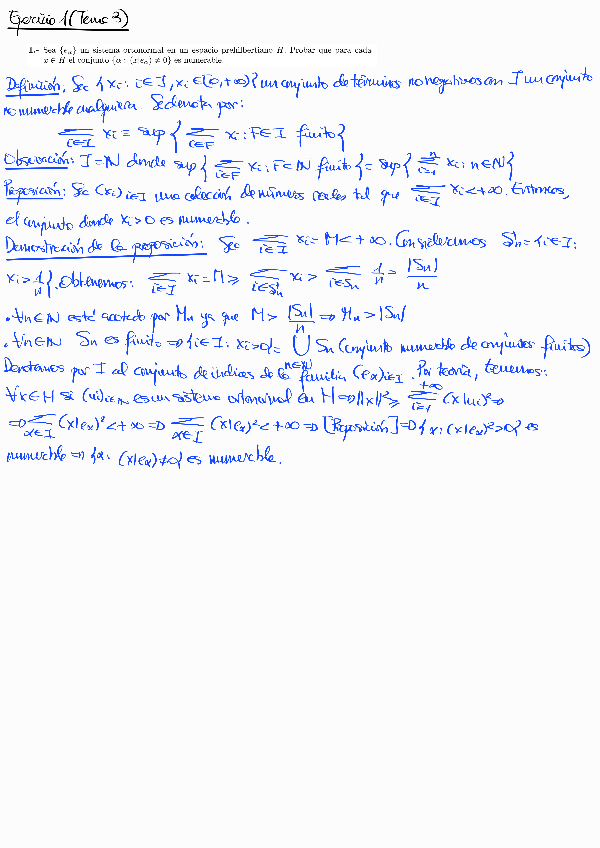 Ejercicio 1 (Tema 3)
1.- Sea {eα} un sistema ortonormal en un espacio prehilbertiano H. Probar que para cada
x ∈ H el conjunto {α : (x|eα) ≠ 0} es numerable.
Definición. Sea {xi : i∈I, xi∈[0,+∞)} un conjunto de términos no negativos con I un conjunto
no numerable cualquiera. Se denota por:
∑_{i∈I} xi = sup { ∑_{i∈F} xi : F⊂I finito }
Observación: I=ℕ donde sup { ∑_{i∈F} xi : F⊂ℕ finito } = sup { ∑_{i=1}^{n} xi : n∈ℕ }
Proposición: Sea (xi)_{i∈I} una colección de números reales tal que ∑_{i∈I} xi < +∞. Entonces,
el conjunto donde xi>0 es numerable.
Demostración de la proposición: Sea ∑_{i∈I} xi = M < +∞. Consideramos Sn = {i∈I :
xi > 1/n}. Obtenemos: ∑_{i∈I} xi = M ≥ ∑_{i∈Sn} xi > ∑_{i∈Sn} 1/n = |Sn|/n
• ∀n∈ℕ está acotado por Mn ya que M > |Sn|/n ⇒ Mn > |Sn|
• ∀n∈ℕ Sn es finito ⇒ {i∈I : xi>0} = ⋃_{n∈ℕ} Sn (conjunto numerable de conjuntos finitos)
Denotamos por I al conjunto de índices de la familia (eα)_{α∈I}. Por teoría, tenemos:
∀x∈H si (ui)_{i∈ℕ} es un sistema ortonormal en H ⇒ ||x||² ≥ ∑_{i=1}^{+∞} (x|ui)² ⇒
⇒ ∑_{α∈I} (x|eα)² < +∞ ⇒ ∑_{α∈I} (x|eα)² < +∞ ⇒ [Proposición] ⇒ {α : (x|eα)² > 0} es
numerable ⇒ {α : (x|eα) ≠ 0} es numerable.